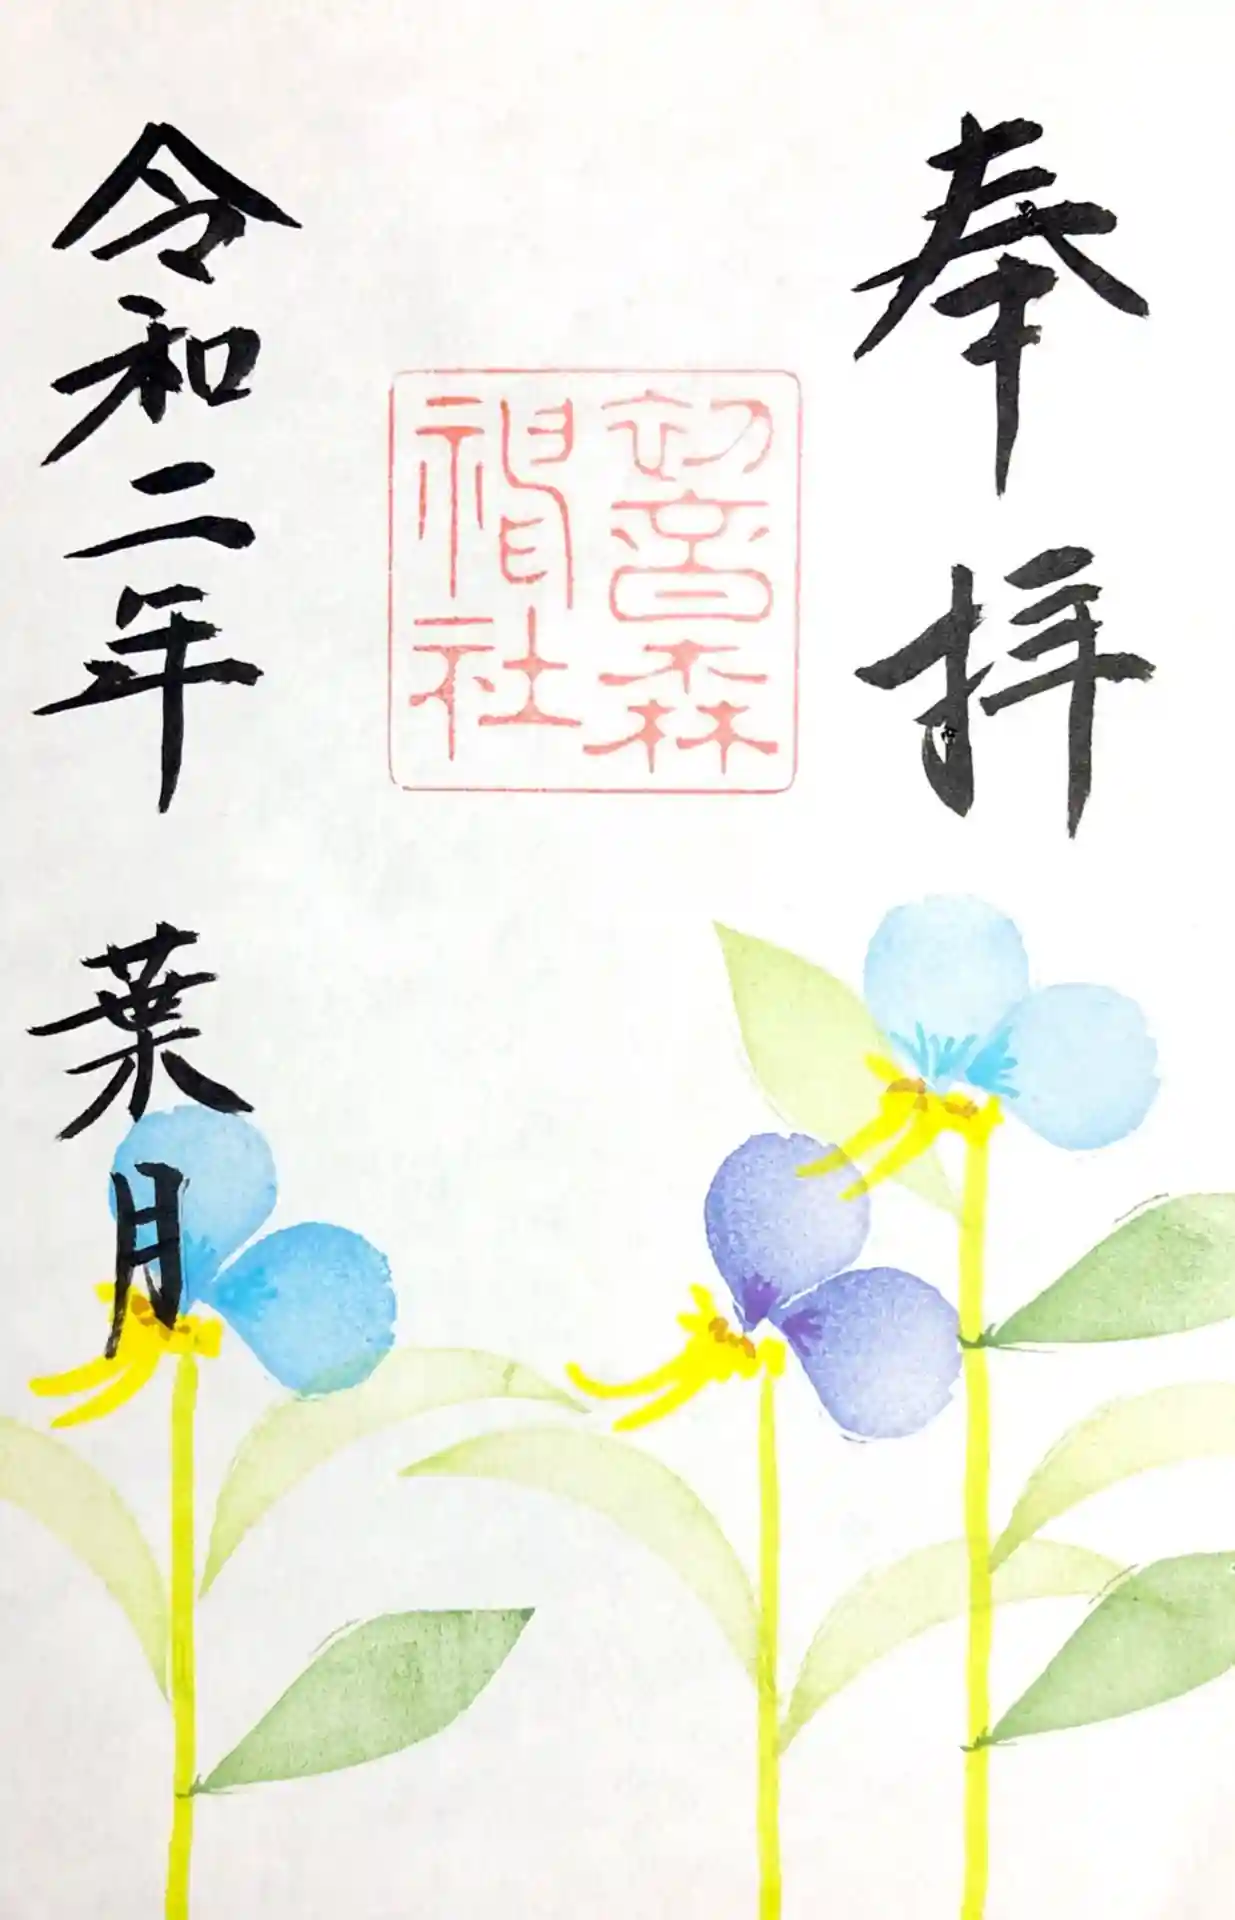 奉拝
初音森
神社
令和二年 葉月